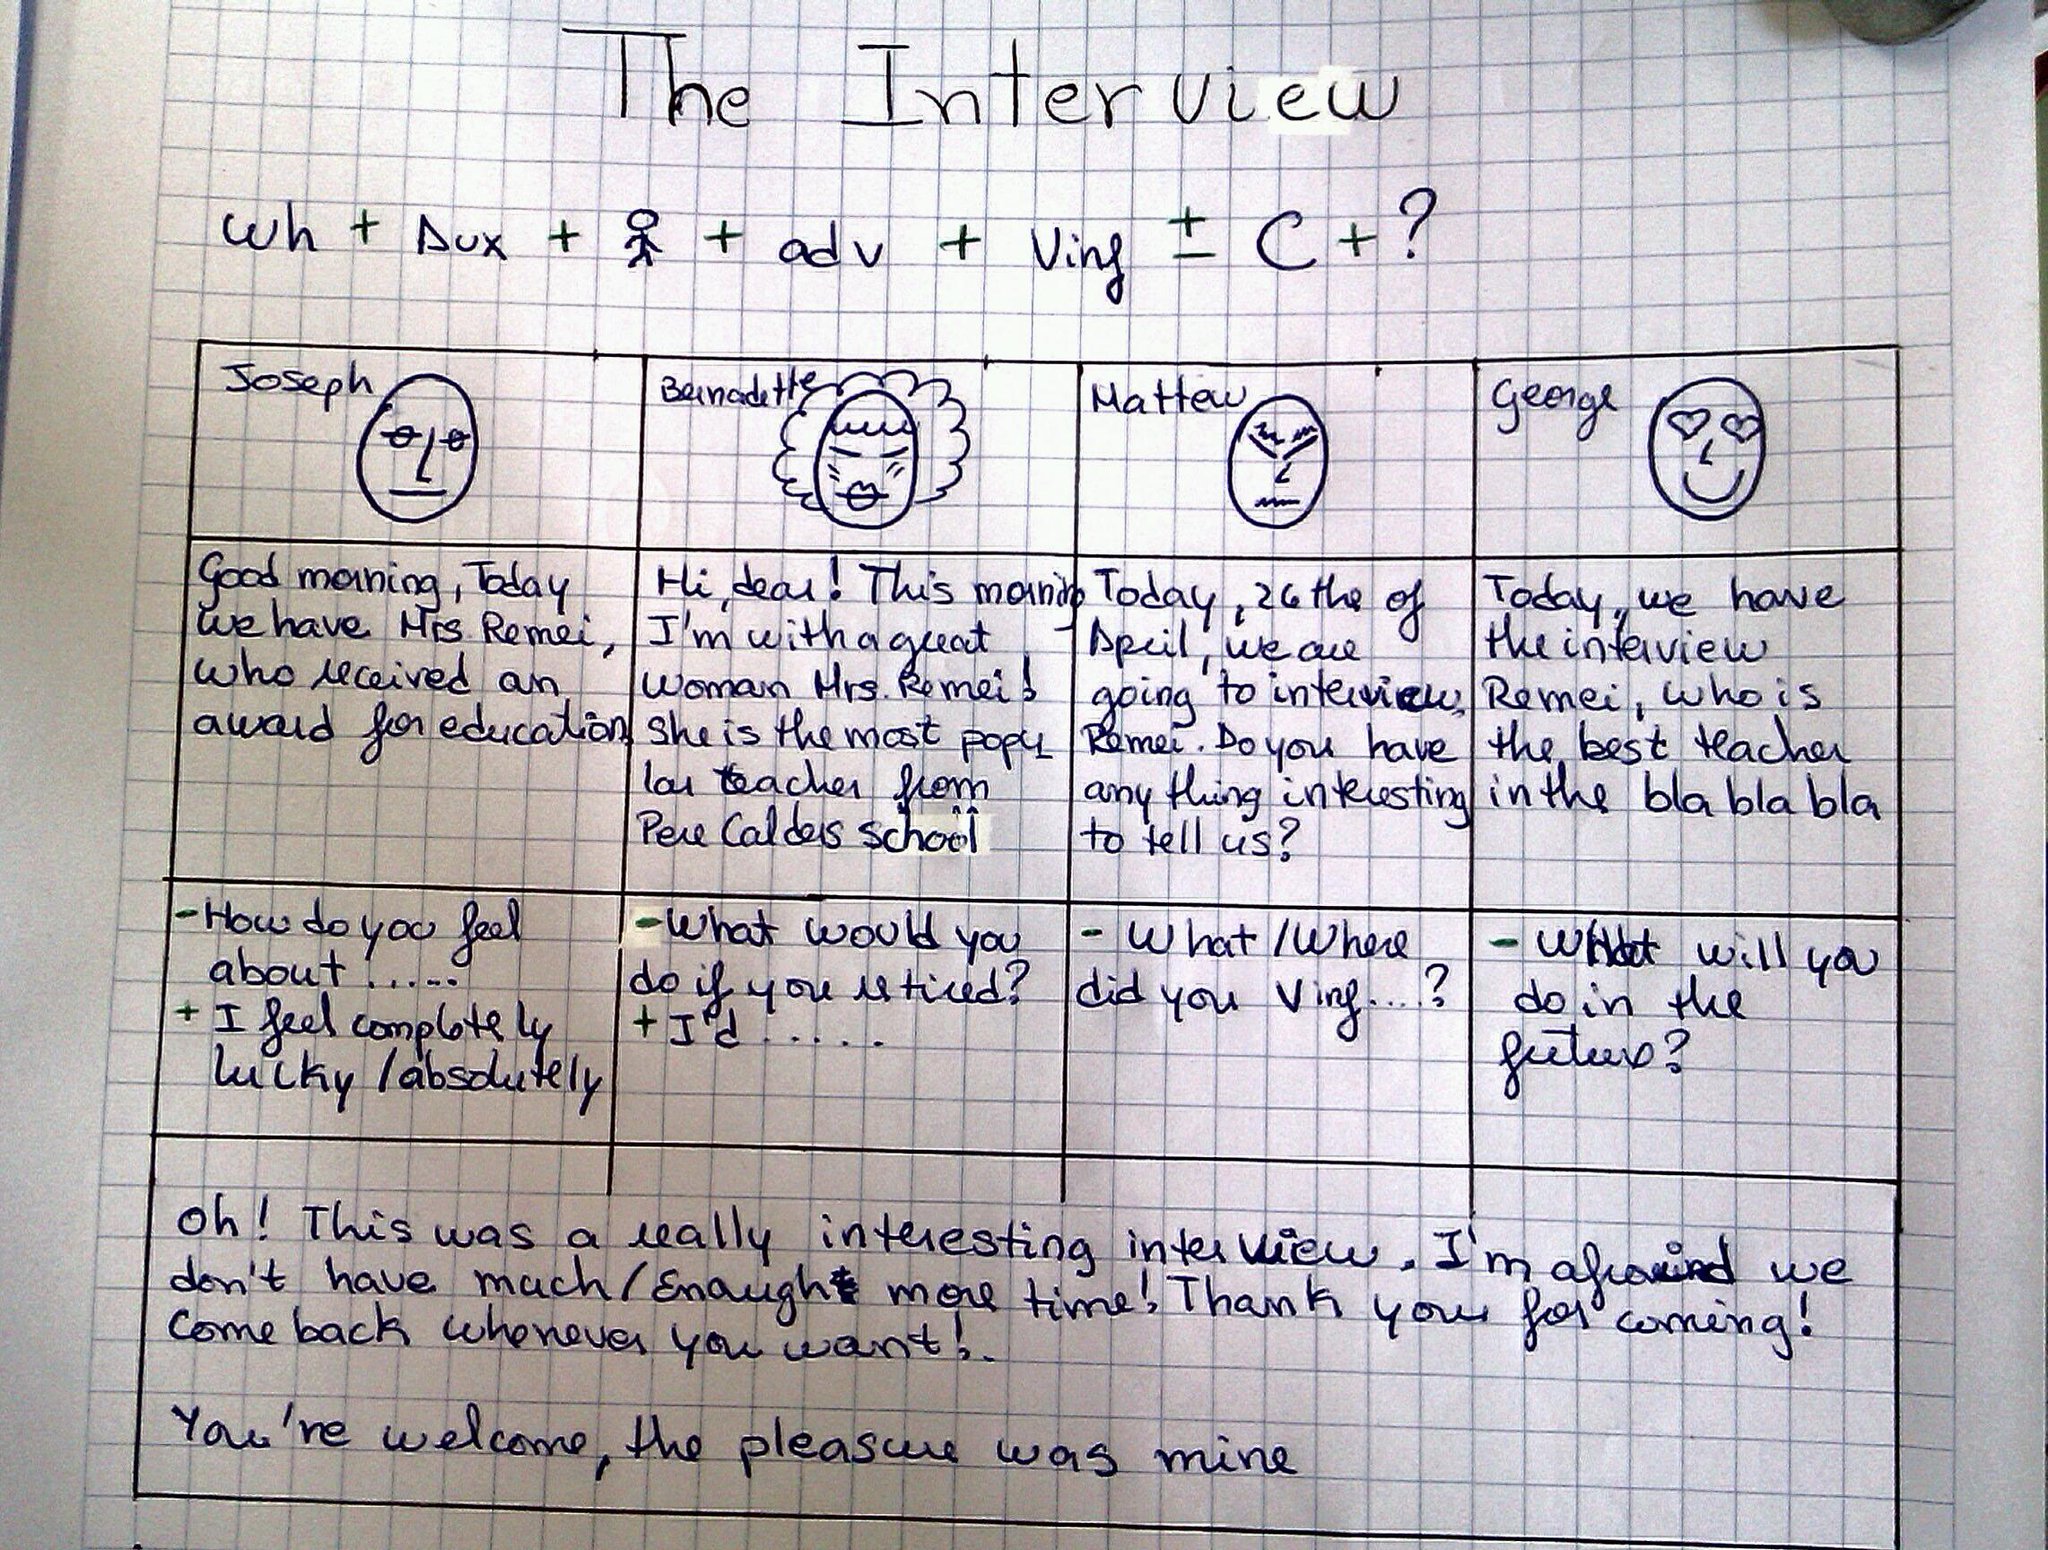 The Interview
Wh + Aux + + adv + Vinf ± C + ?
Joseph
Bernadette
Mattew
George
Good morning, Today
we have Mrs Remei,
who received an
award for education
Hi, dear! This morning
I'm with a great
woman Mrs. Remei!
She is the most popu
lar teacher from
Pere Calders school
Today, 26 the of
April, we are
going to interview
Remei. Do you have
any thing interesting
to tell us?
Today, we have
the interview
Remei, who is
the best teacher
in the bla bla bla
- How do you feel
about .....
+ I feel completely
lucky / absolutely
- What would you
do if you retired?
+ I'd .....
- What / Where
did you Vinf....?
- What will you
do in the
future?
Oh! This was a really interesting interview. I'm afraind we
don't have much / Enaught more time! Thank you for coming!
Come back whenever you want!.
You're welcome, the pleasure was mine